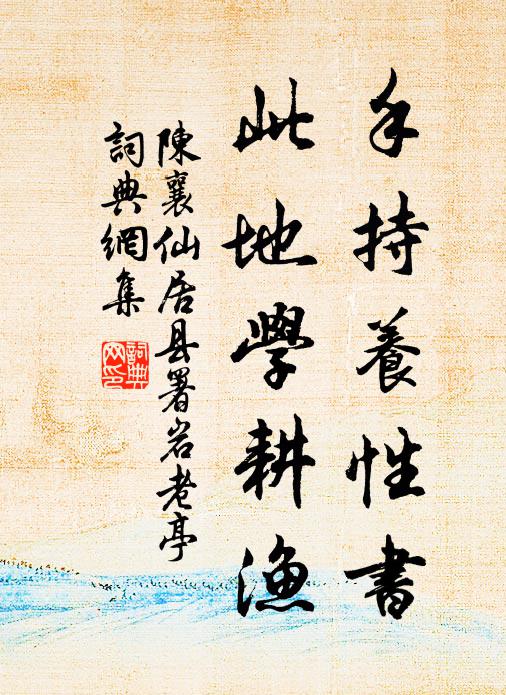 手持養性書
此地學耕漁
陳襄仙居县署岩老亭
詞典網集
詞典網印